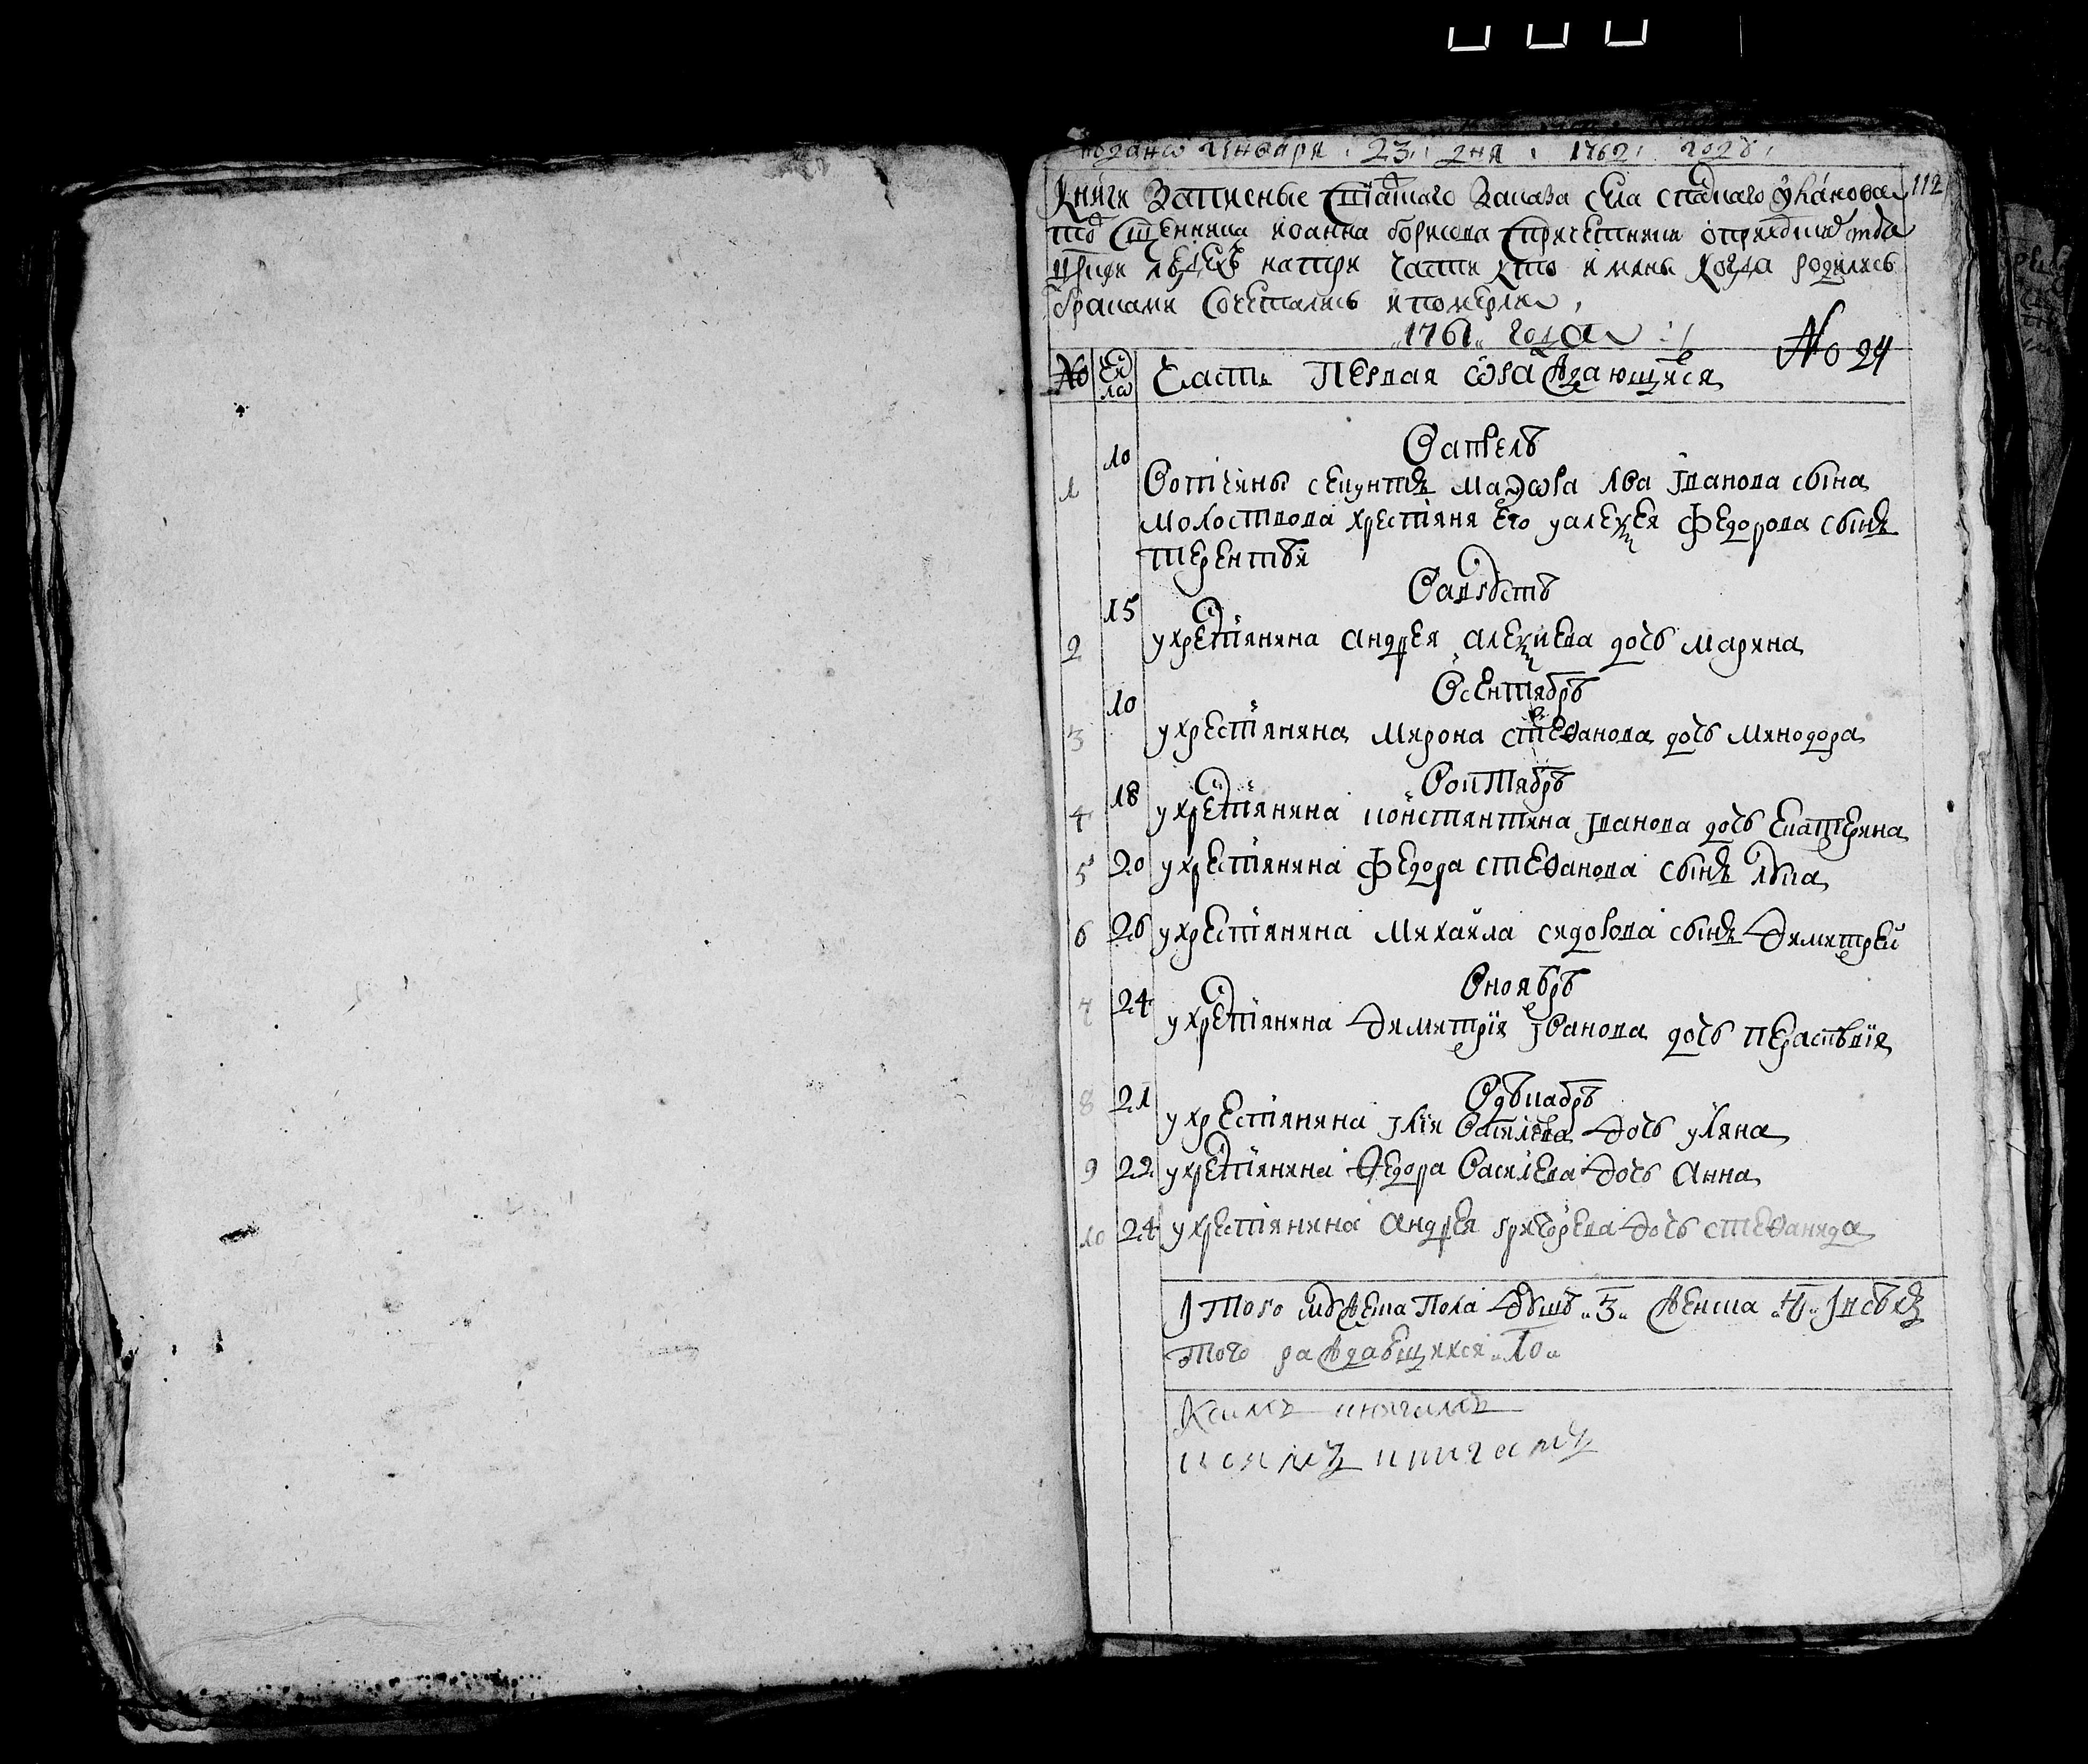 подано генваря 23 дня 1762 году
112
Книги записные Спаскаго заказа села Спаскаго
священника Иоанна Борисова с причетники
на три части кто имяны когда родились
браками сочетались и померли
1761 года
№ 24
№ число Часть первая о раждающихся
В апрель
1 10 Вотчины секунтъ маэора Лва Iванова сына
Молоствова хрестияня его у Алексея Федорова сынъ
Терентей
В август
2 15 у хрестиянина Андрея Алексиева дочь Марина
В сентябрь
3 10 у хрестиянина Мирона Стеѳанова дочь Минодора
В октябрь
4 18 у хрестиянина Константина Iванова дочь Екатерина
5 20 у хрестиянина Федора Стеѳанова сынъ Лука
6 26 у хрестиянина Михаила Сидорова сынъ Димитрей
В ноябрь
7 24 у хрестиянина Димитрия Iванова дочь Перасковия
В декабрь
8 21 у хрестиянина Iлiи Василева дочь Уляна
9 22 у хрестиянина Ѳедора Василева дочь Анна
10 24 у хрестиянина Андрея Григорева дочь Стеѳанида
Iтого мужеска пола душъ 3 женска 7 I всехъ
того раждавшихся 10
К симъ книгамъ